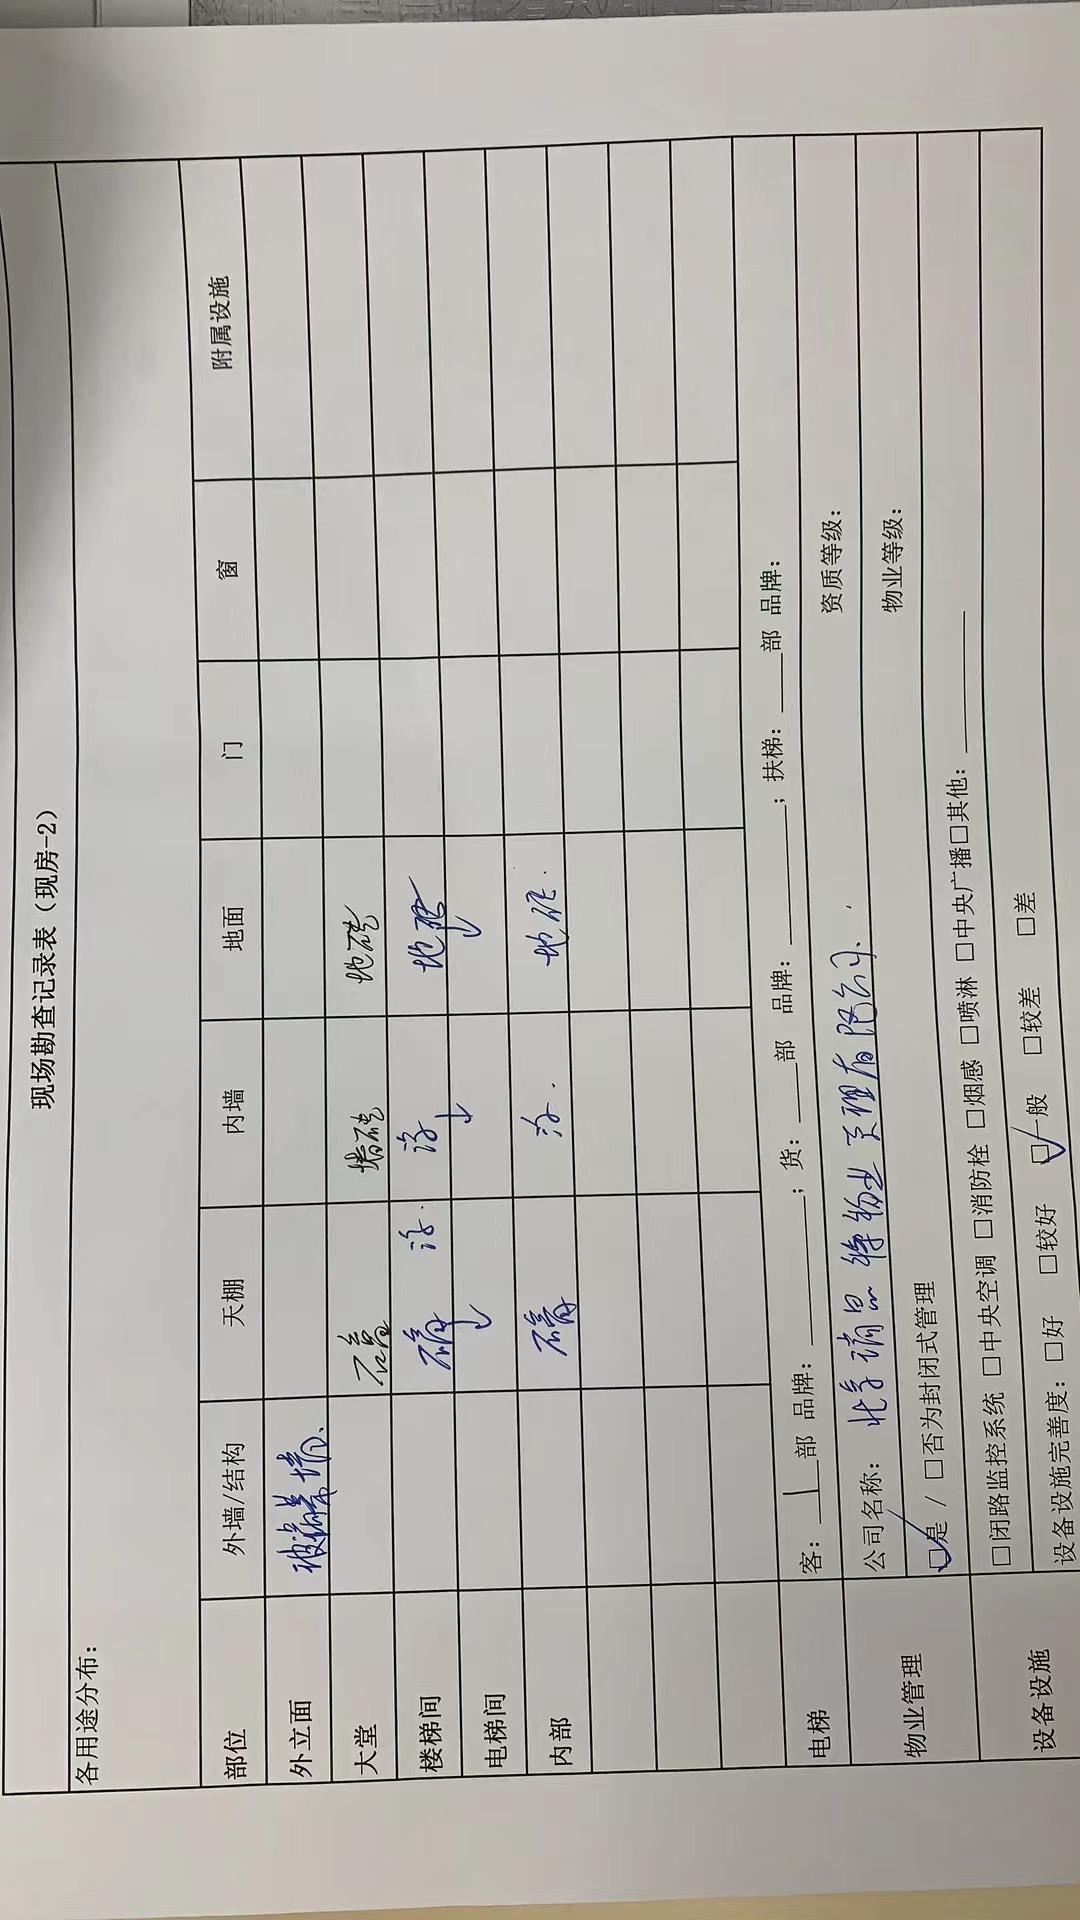 现场勘查记录表（现房-2）
各用途分布：
部位 外墙/结构 天棚 内墙 地面 门 窗 附属设施
外立面 玻璃幕墙
大堂 石膏 墙砖 地砖
楼梯间 石膏 涂 涂 地砖
电梯间 ↓ ↓ ↓
内部 石膏 涂 地砖
电梯 客：____部 品牌：________；货：____部 品牌：________；扶梯：____部 品牌：
物业管理 公司名称：北京 物业管理有限公司 资质等级：
☑是 / □否为封闭式管理 物业等级：
设备设施 □闭路监控系统 □中央空调 □消防栓 □烟感 □喷淋 □中央广播□其他：________
设备设施完善度：□好 □较好 ☑一般 □较差 □差